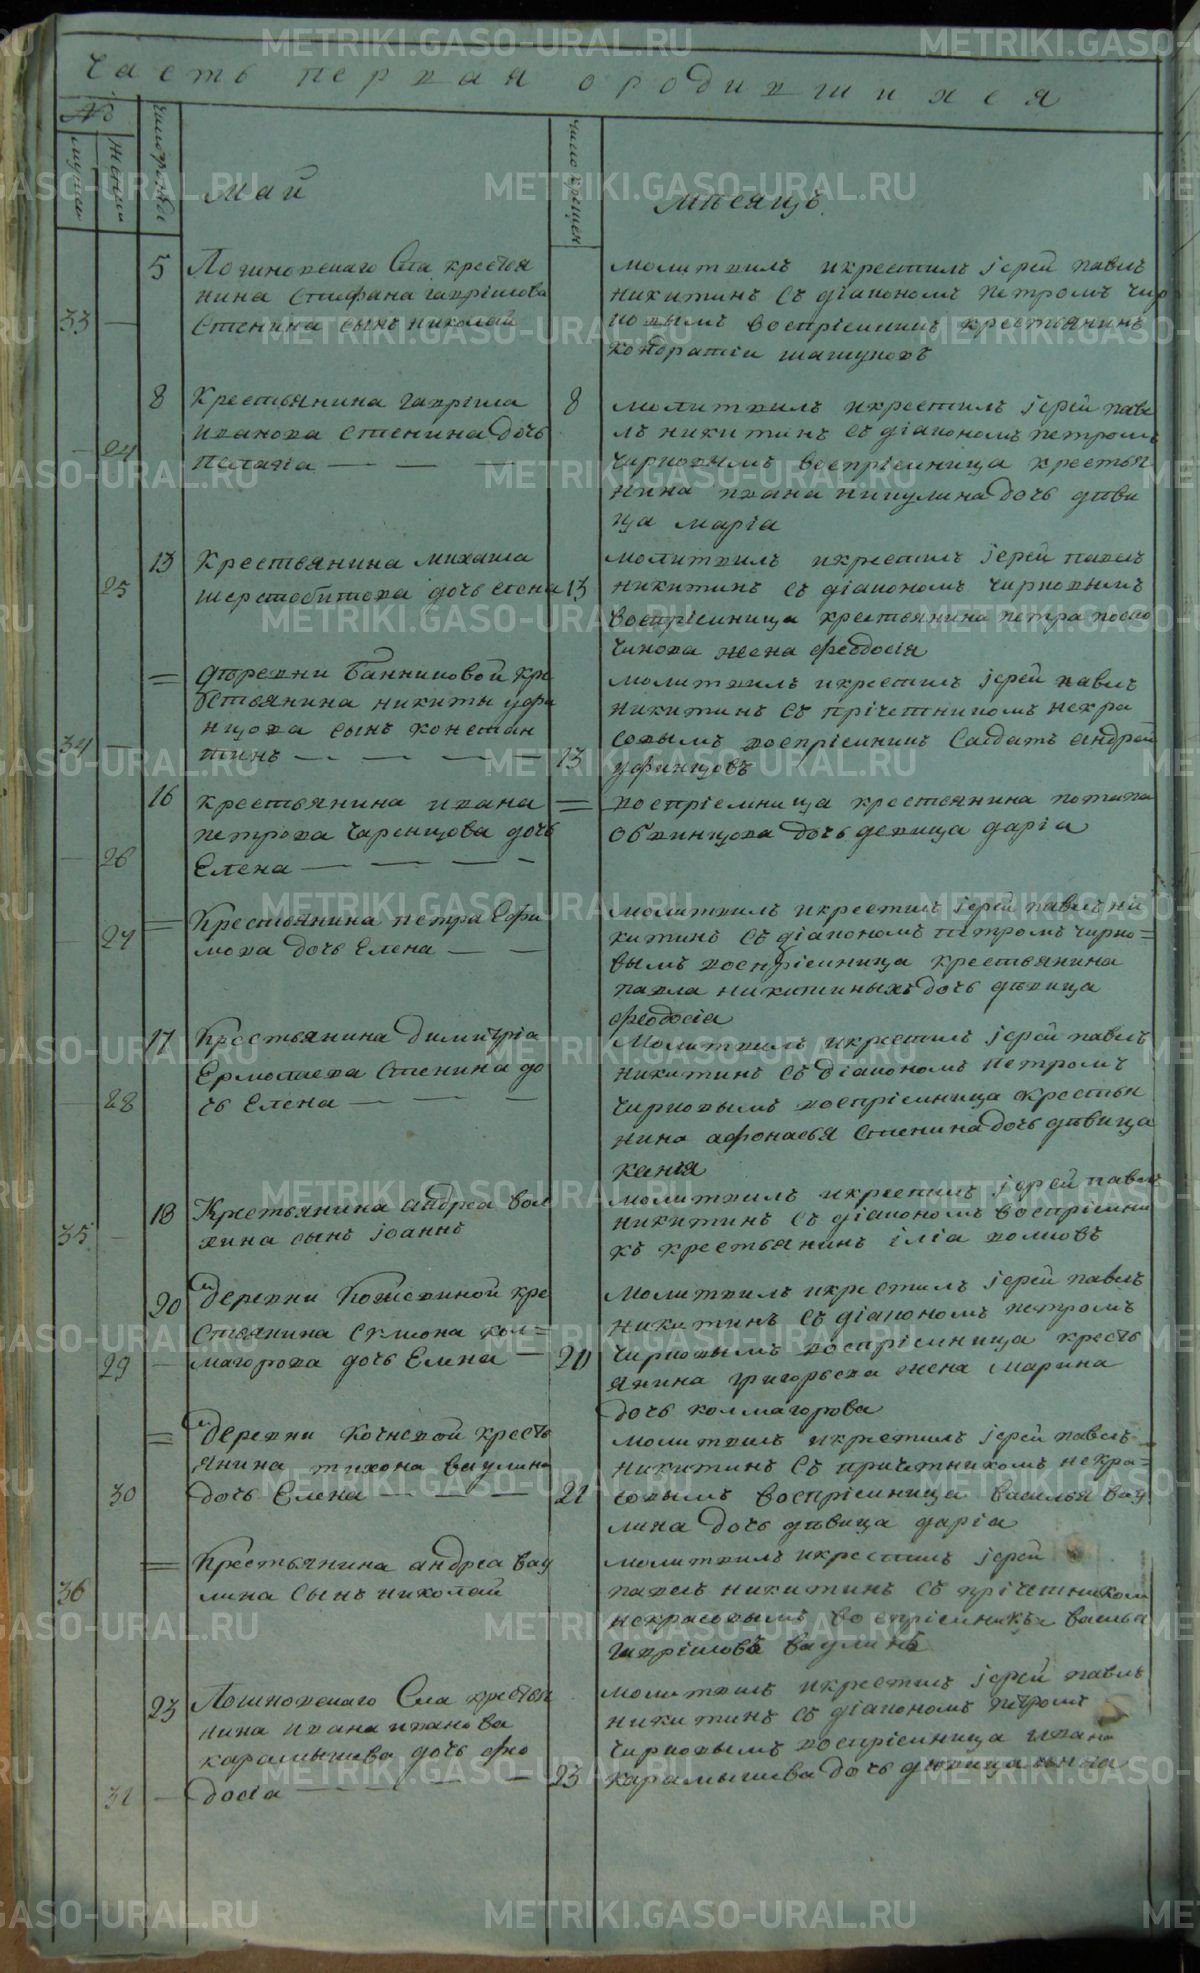 Часть первая о родившихся
№
мужеск
женски
число рожде
число крещен
май
мѣсяцъ
5
Логиновскаго Села крестья
нина Стефана гавріилова
33
Стенина сынъ николай
молитвилъ икрестилъ іерей павелъ
никитинъ съ діакономъ петромъ чир
ковымъ воспріемникъ крестьянинъ
кондратіи шашуновъ
8
Крестьянина гавріила
иванова стенина дочь
24
пелагіа
8
молитвилъ икрестилъ іерей паве
лъ никитинъ съ діакономъ петромъ
чирковымъ воспріемница крестья
нина ивана никулина дочь дѣви
ца маріа
13
Крестьянина михаила
25
шерстобитова дочь елена
13
молитвилъ икрестилъ іерей павелъ
никитинъ съ діакономъ чирковымъ
воспріемница крестьянина петра
чинова жена феодосія
=
деревни банниковой кре
стьянина никиты уфи
нцова сынъ констан
34
тинъ
13
молитвилъ икрестилъ іерей павелъ
никитинъ съ прічетникомъ некра
совымъ воспріемникъ Салдатъ андрей
уфинцовъ
16
крестьянина ивана
петрова чаренцова дочь
26
Елена
=
воспріемница крестьянина потапа
Обвинцова дочь девица даріа
=
27
Крестьянина петра Ефи
мова дочь Елена
молитвилъ икрестилъ іерей павелъ ни
китинъ съ діакономъ петромъ чирко=
вымъ воспріемница крестьянина
павла никитиныхъ дочь дѣвица
феодосіа
17
Крестьянина димитріа
Ермолаева Стенина до
28
чь Елена
Молитвилъ икрестилъ іерей павелъ
никитинъ съ діакономъ петромъ
чирковымъ воспріемница крестья
нина афонасья Стенина дочь дѣвица
18
Крестьянина андреа
35
хина сынъ іоаннъ
молитвилъ икрестилъ іерей павелъ
никитинъ съ діакономъ воспріемни
къ крестьянинъ іліа волковъ
20
деревни Кожевиной кре
стьянина семіона кол=
29
магорова дочь Елена
20
молитвилъ икрестилъ іерей павелъ
никитинъ съ діакономъ петромъ
чирковымъ воспріемница кресть
янина григорьева жена марина
дочь колмагорова
=
деревни Кочневой кресть
янина тихона ваулина
30
дочь Елена
21
молитвилъ икрестилъ іерей павелъ
никитинъ съ причетникомъ некра=
совымъ воспріемница василья вау
лина дочь дѣвица даріа
=
36
Крестьянина андреа вау
лина сынъ николай
молитвилъ икрестилъ іерей
павелъ никитинъ съ прічетникомъ
некрасовымъ воспріемникъ
гавріиловъ ваулинъ
23
Логиновскаго Села крестья
нина ивана иванова
карамышева дочь фео
31
досіа
23
молитвилъ икрестилъ іерей павелъ
никитинъ съ діакономъ петромъ
чирковымъ воспріемница ивана
карамышева дочь дѣвица
METRIKI.GASO-URAL.RU